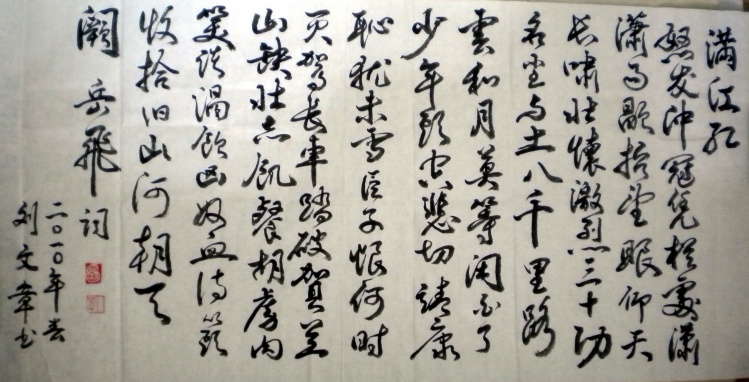 满江红
怒发冲冠凭栏處潇
潇雨歇抬望眼仰天
长啸壮怀激烈三十功
名尘与土八千里路
雲和月莫等闲白了
少年头空悲切靖康
恥犹未雪臣子恨何时
灭驾长車踏破贺兰
山缺壮志飢餐胡虏肉
笑谈渴饮凶奴血待从頭
收拾旧山河朝天
阙 岳飛 词
二〇一〇年春
刘文章书